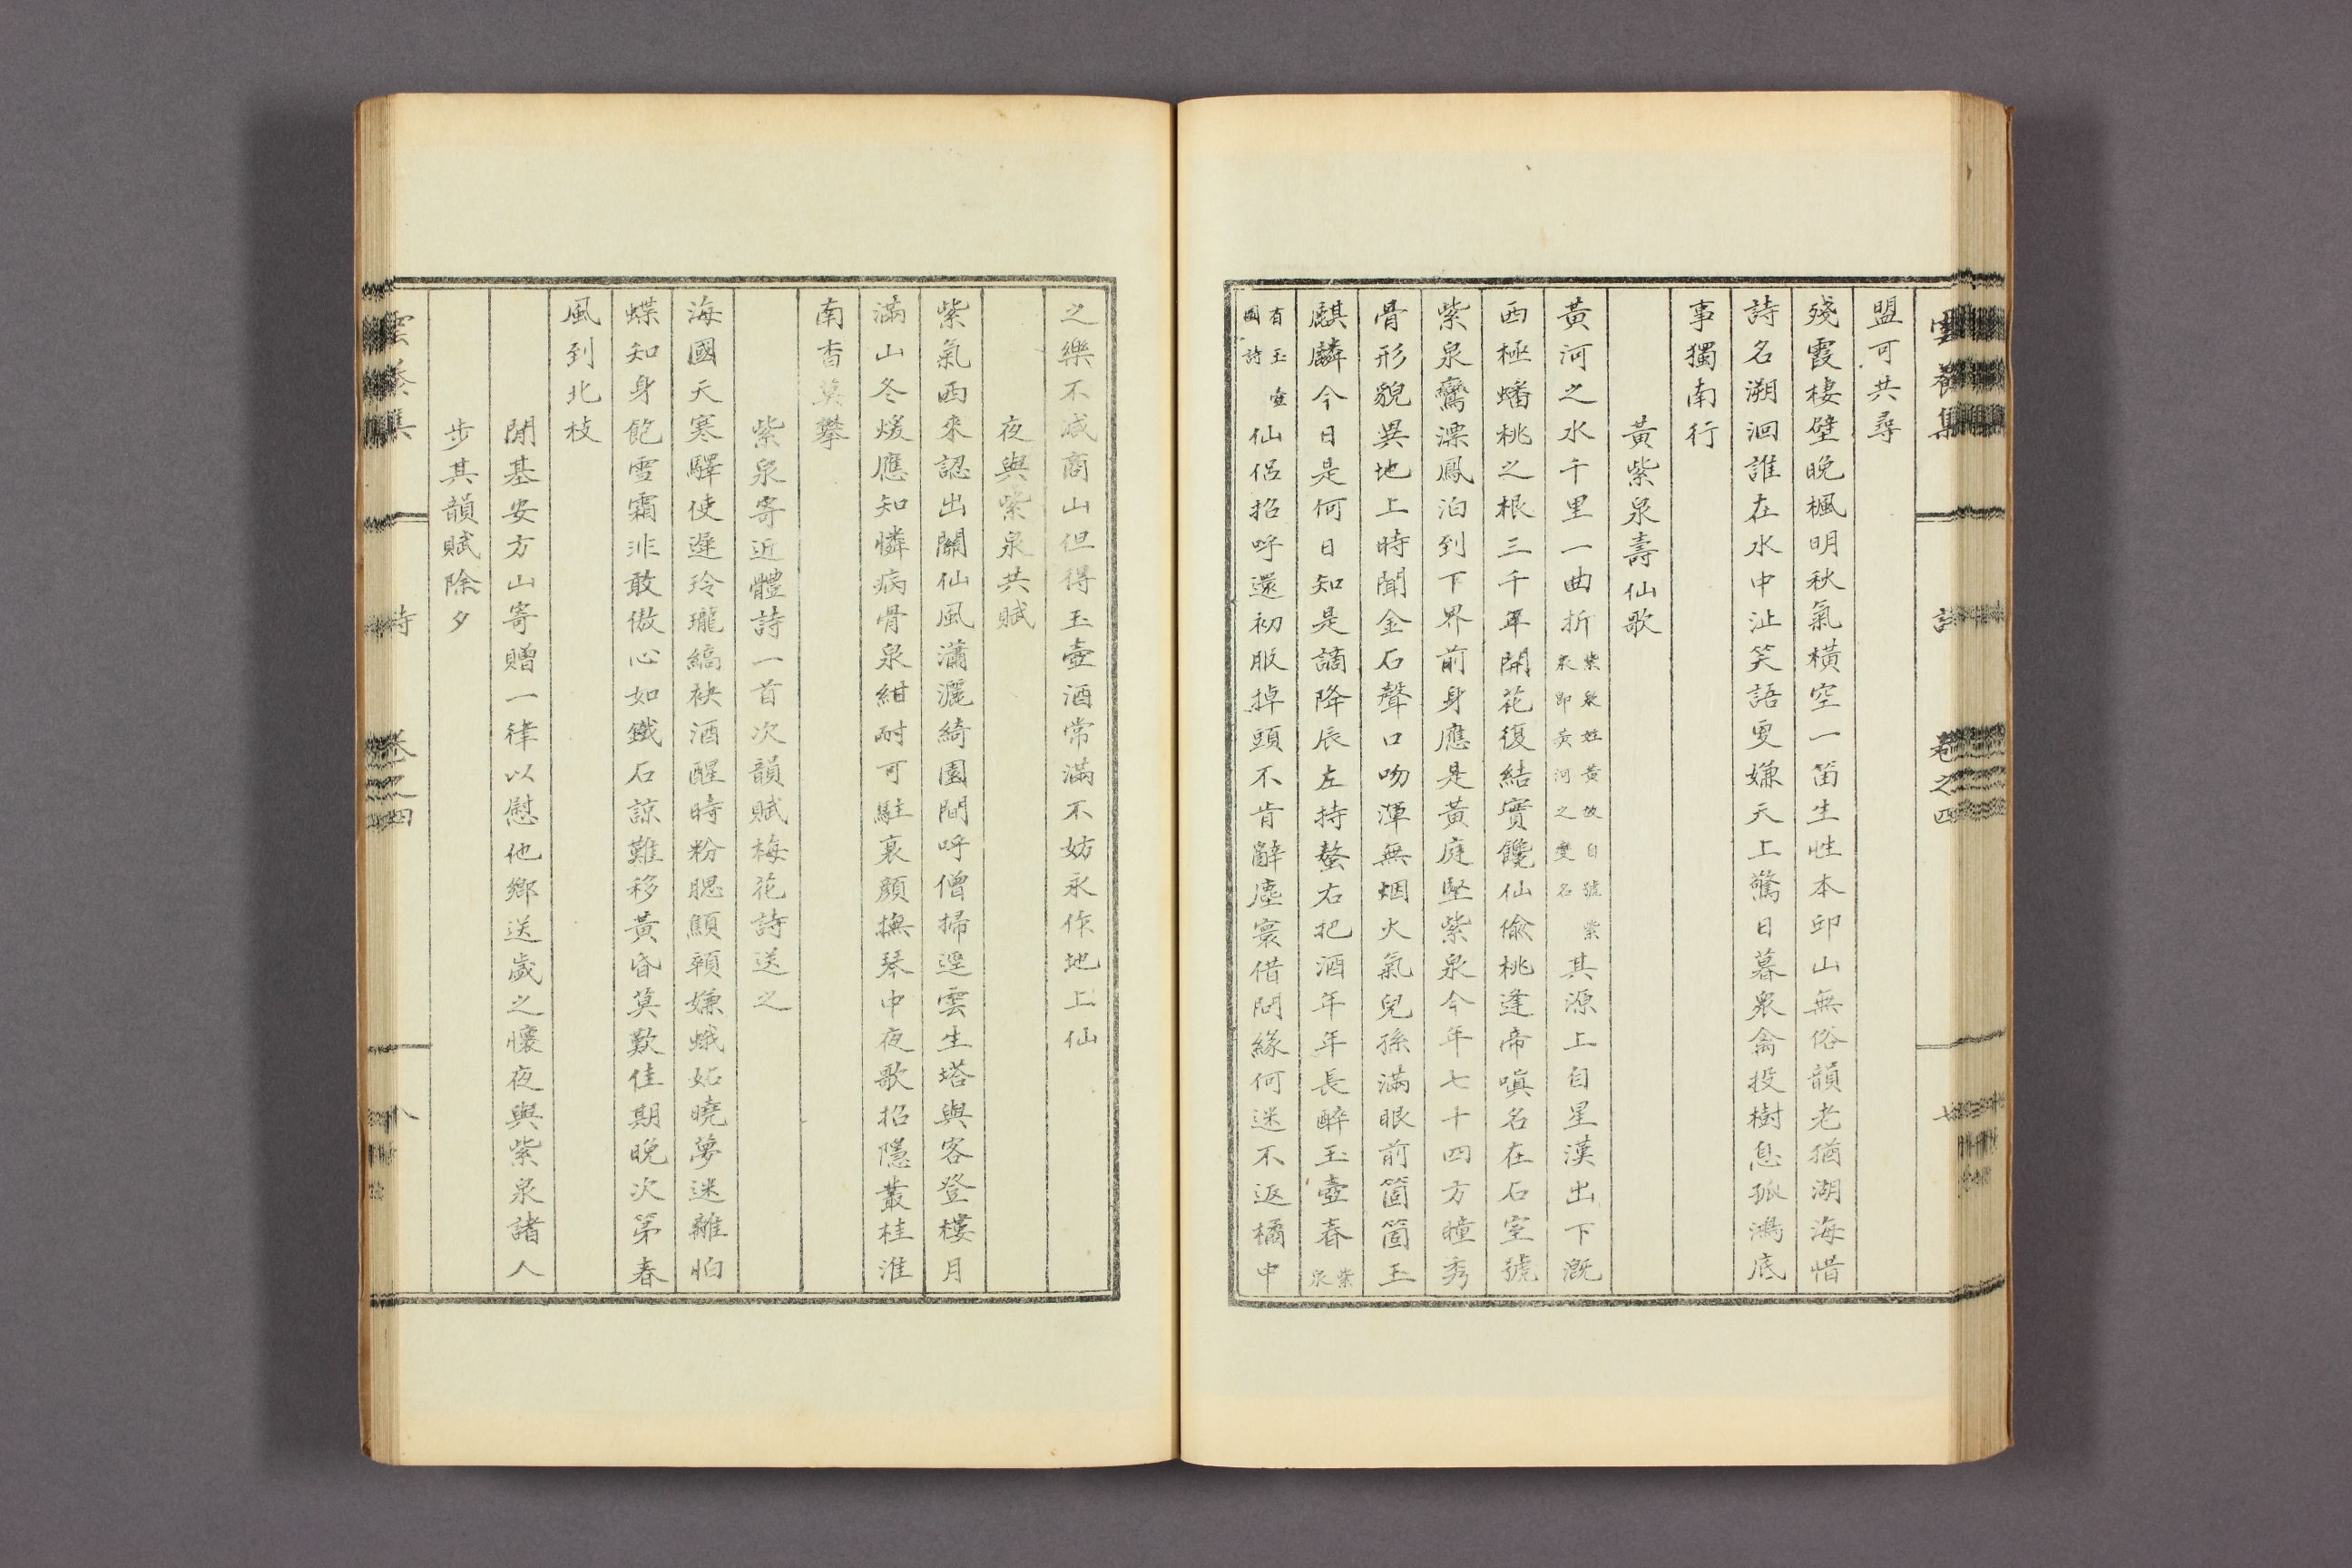 雲養集 詩 卷之四 七
盟可共尋
殘霞棲壁晚楓明秋氣橫空一笛生性本邱山無俗韻老猶湖海惜
詩名溯洄誰在水中沚笑語更嫌天上驚日暮衆禽投樹息孤鴻底
事獨南行
黃紫泉壽仙歌
黃河之水千里一曲折紫泉姓黃故自號紫泉卽黃河之變名其源上自星漢出下漑
西極蟠桃之根三千年開花復結實饞仙偸桃逢帝嗔名在石室號
紫泉鸞漂鳳泊到下界前身應是黃庭堅紫泉今年七十四方瞳秀
骨形貌異地上時聞金石聲口吻渾無烟火氣兒孫滿眼前箇箇玉
麒麟今日是何日知是謫降辰左持螯右把酒年年長醉玉壺春紫泉
有玉壺園詩仙侶招呼還初服掉頭不肯辭塵寰借問緣何迷不返橘中
之樂不減商山但得玉壺酒常滿不妨永作地上仙
夜與紫泉共賦
紫氣西來認出關仙風瀟灑綺園間呼僧掃逕雲生塔與客登樓月
滿山冬煖應知憐病骨泉紺耐可駐衰顏撫琴中夜歌招隱叢桂淮
南杳莫攀
紫泉寄近體詩一首次韻賦梅花詩送之
海國天寒驛使遲玲瓏縞袂酒醒時粉腮顦顇嫌蛾妬曉夢迷離怕
蝶知身飽雪霜非敢傲心如鐵石諒難移黃昏莫歎佳期晚次第春
風到北枝
閒基安方山寄贈一律以慰他鄉送歲之懷夜與紫泉諸人
步其韻賦除夕
雲養集 詩 卷之四 八